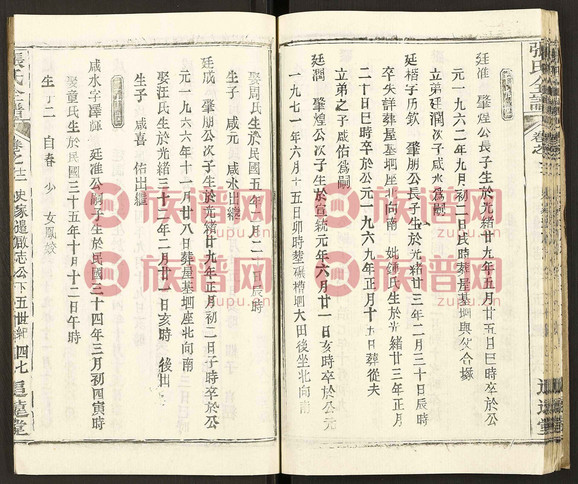 廷淮 肇煌公長子生於光緒廿九年五月廿五日巳時卒於公
元一九六二年九月初二日辰時葬屋基垻與父合塚
立弟廷潤次子咸水爲嗣
廷楷字历欽 肇朋公長子生於光緒廿三年二月三十日辰時
卒失詳葬屋基垻座 向南 妣鍾氏生於光緒廿三年正月
二十日巳時卒於公元一九六九年正月十一日葬從夫
立弟之子咸佑爲嗣
廷潤 肇煌公次子生於宣統元年六月廿一日亥時卒於公元
一九七一年六月十五日卯時葬碾槽垻大田後坐北向南
娶周氏生於民國五年八月二十日辰時
生子 咸元 咸水出繼
廷成 肇朋公次子生於光緒廿九年正月初二日子時卒於公
元一九六六年十一月廿八日葬屋基垻座北向南
娶汪氏生於光緒三十二年二月廿一日亥時 後出
生子 咸喜 佑出繼
咸水字澤輝 廷淮公嗣子生於民國三十四年三月初四寅時
娶童氏生於民國三十五年十月十二日午時
生子二 自春 少 女鳳姣
張氏全譜 卷之十二 史家追敵志公下五世紀 四七 追遠堂
張氏全譜 卷之十二 追遠堂
族谱网
zupu.cn
族谱网
zupu.cn
族谱网
zupu.cn
族谱网
zupu.cn